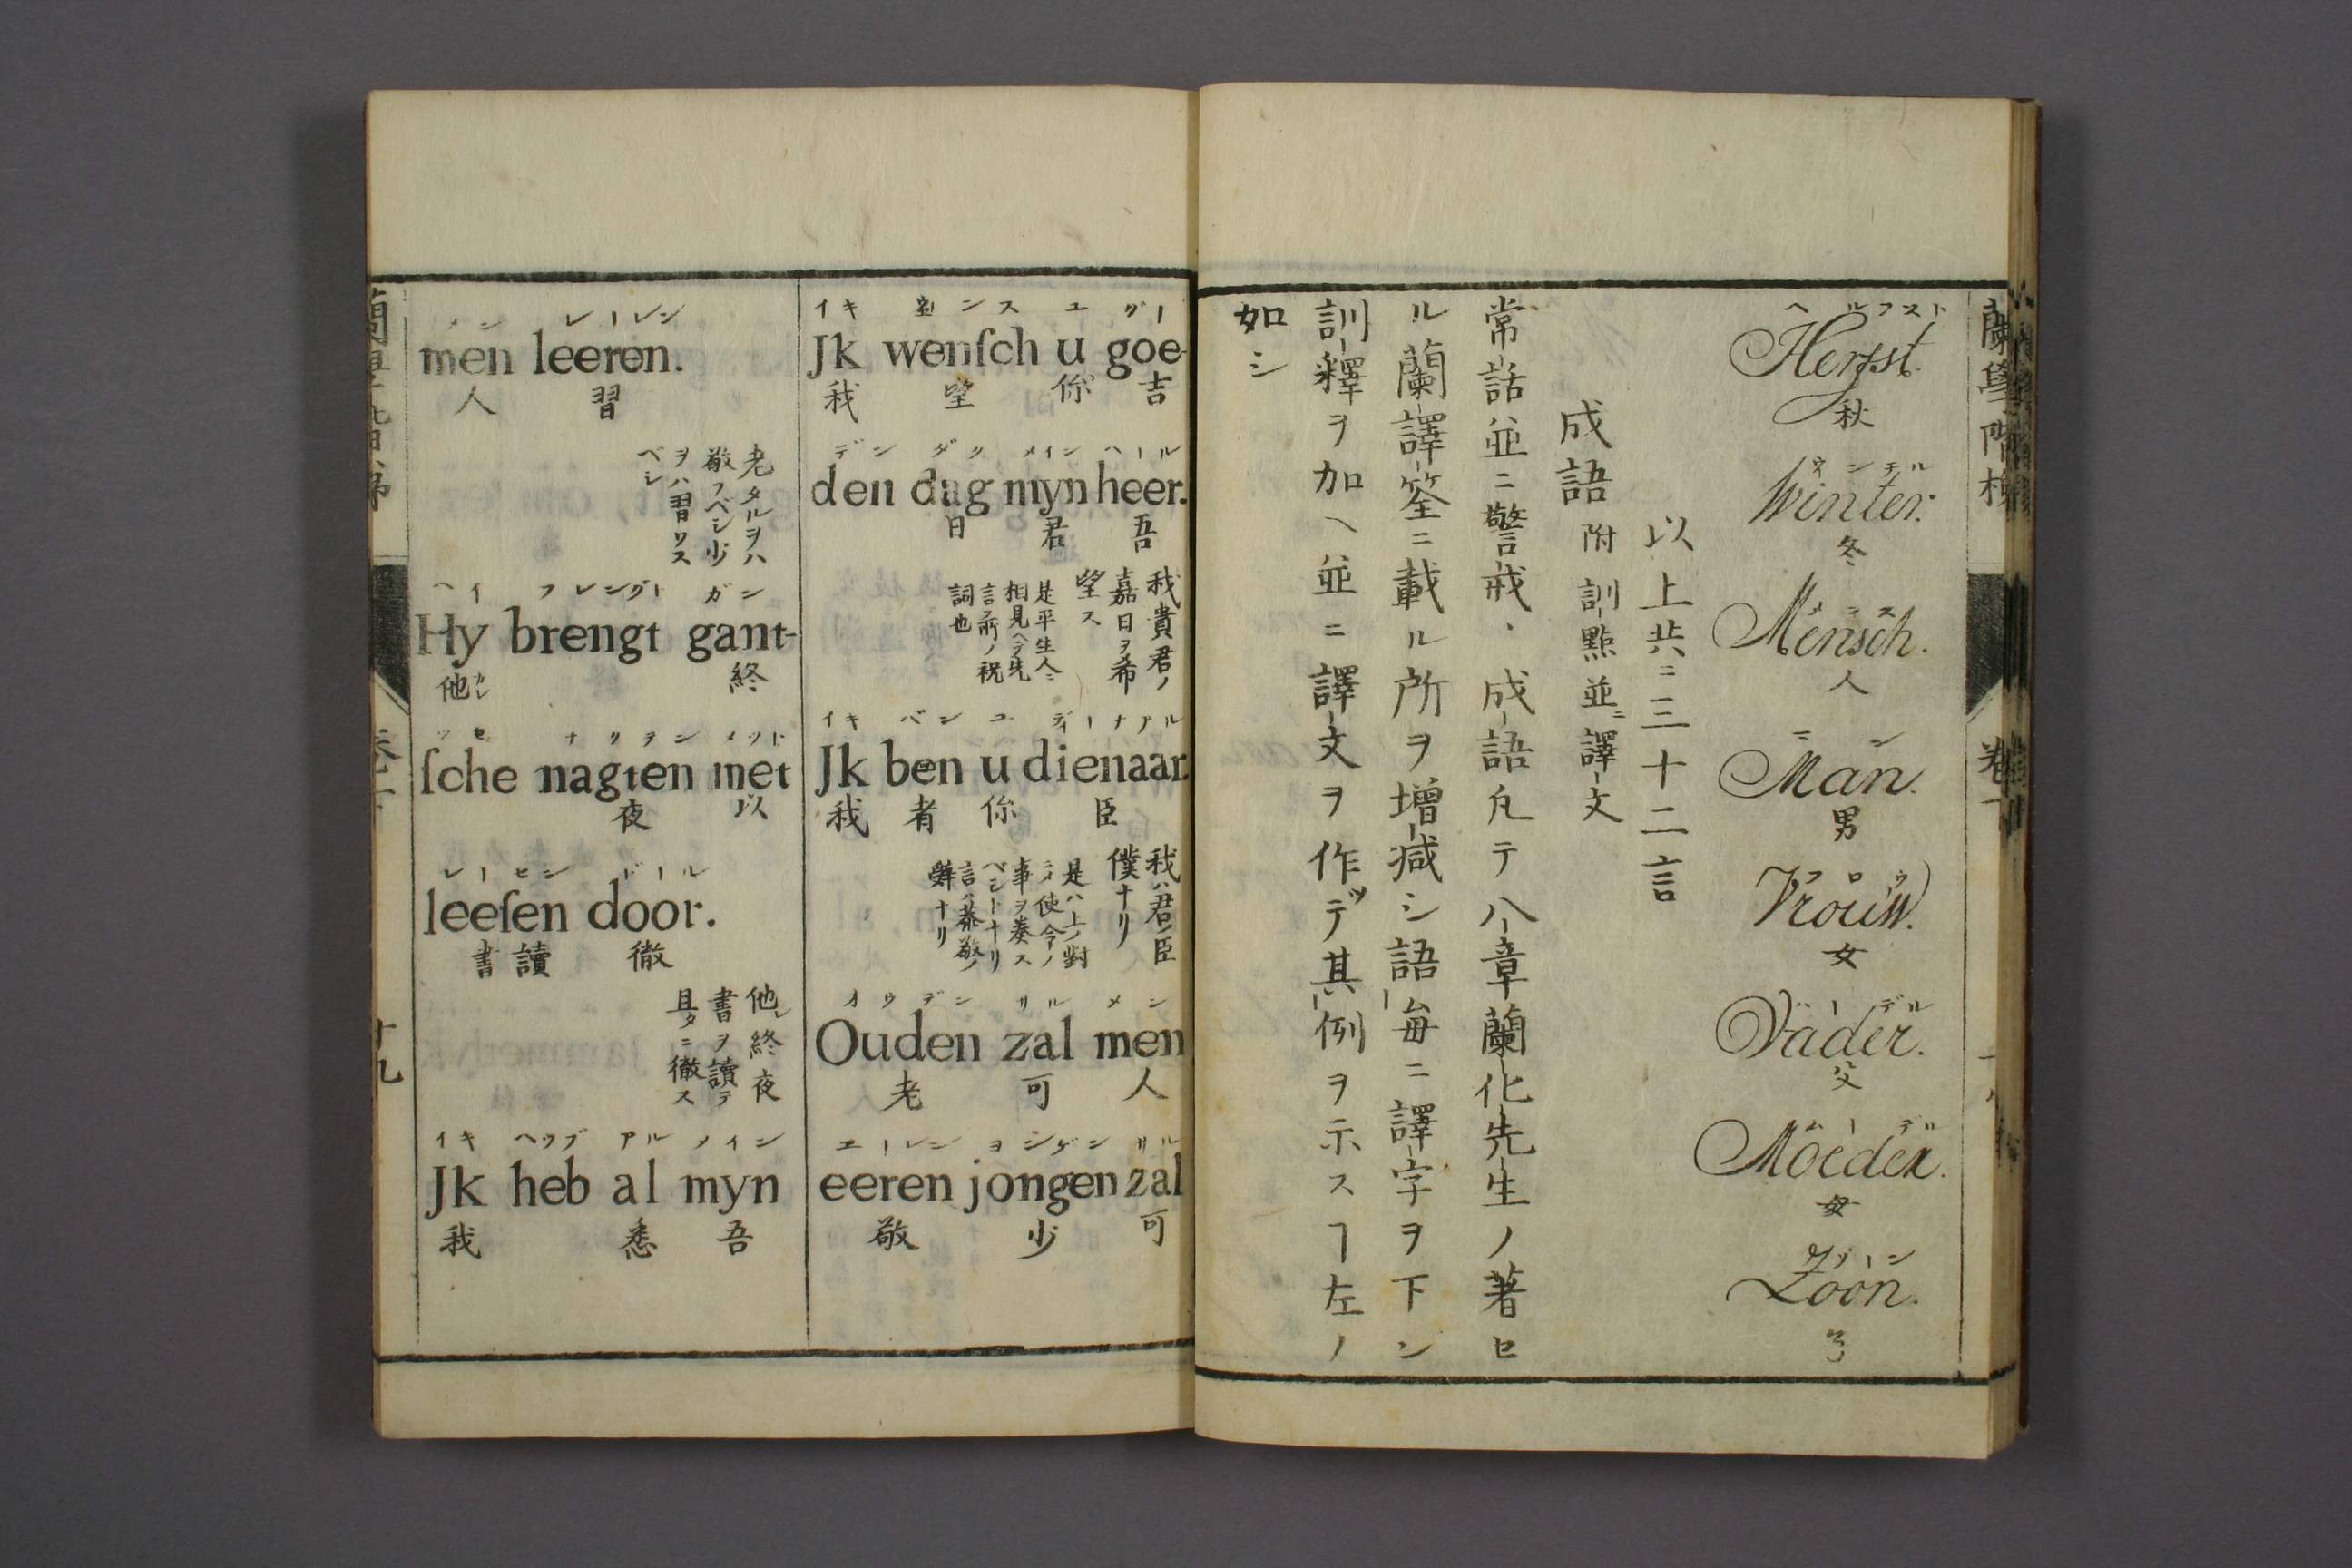 蘭學階梯
卷下
ヘルフスト
Herfst.
秋
ウインテル
Winter.
冬
メンス
Mensch.
人
マン
Man.
男
フロウ
Vrouw.
女
バーデル
Vader.
父
ムーデル
Moeder.
母
ソーン
Zoon.
以上共ニ三十二言
成語 附訓點並ニ譯文
常話並ニ警戒・成語凡テ八章蘭化先生ノ著セ
ル蘭譯筌ニ載ル所ヲ增減シ語每ニ譯字ヲ下シ
訓釋ヲ加ヘ並ニ譯文ヲ作テ其例ヲ示スヿ左ノ
如シ
イキ ウェンス ユ グー
Jk wenſch u goe-
我 望 你 吉
デン ダク メイン ヘール
den dag myn heer.
日 君 吾
我貴君ノ
嘉日ヲ希
望ス
是平生人ニ
相見ヘテ先
言フ所ノ祝
詞也
イキ ベン ユ ディーナアル
Jk ben u dienaar.
我 者 你 臣
我ハ君ノ臣
僕ナリ
是ハ上ノ對
シテ使令ノ
事ヲ奏ス
ベシトナリ
言ハ恭敬ノ
辭ナリ
オウデン サル メン
Ouden zal men
老 可 人
エーレン ヨンゲン サル
eeren jongen zal
敬 少 可
メン レーレン
men leeren.
人 習
老タルヲハ
敬フベシ少
ヲハ習ワス
ベシ
ヘイ フレングト ガン
Hy brengt gant-
他カレ 終
ツセ ナクテン メット
ſche nagten met
夜 以
レーセン ドール
leeſen door.
書讀 徹
他レ終夜
書ヲ讀テ
旦タニ徹ス
イキ ヘウブ アル メイン
Jk heb al myn
我 悉 吾
十九